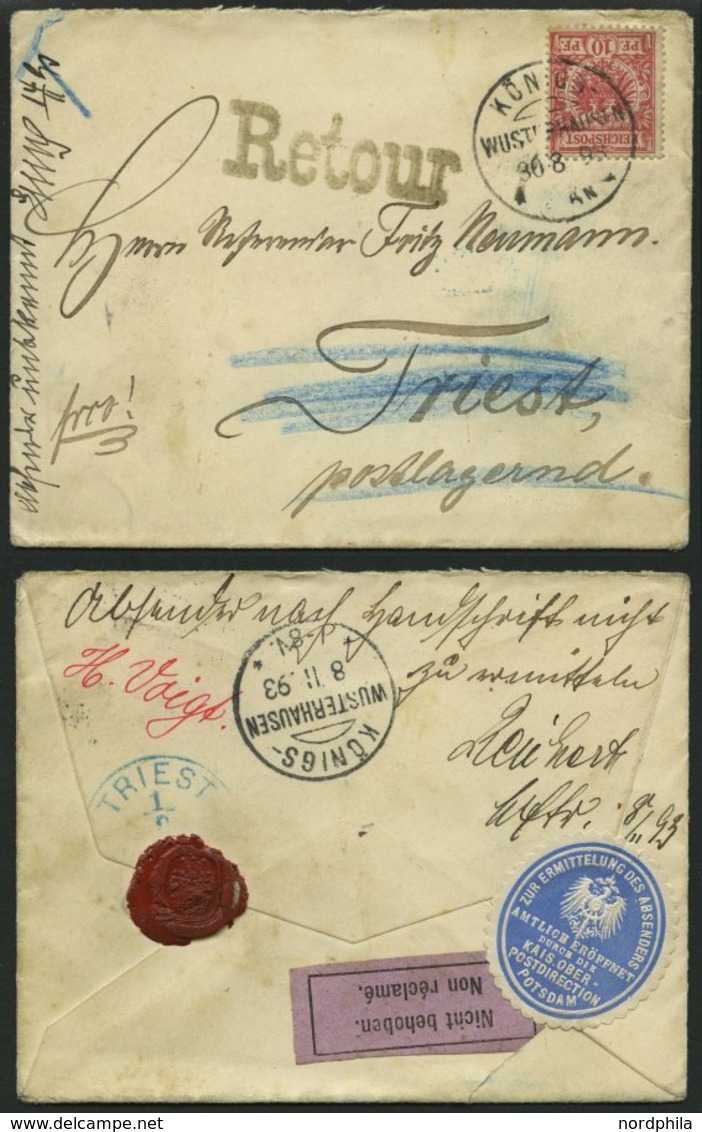 Retour
KÖNIGS-
WUSTERHAUSEN
30 8 93
10
REICHSPOST
Herrn Referendar Fritz Neumann.
Triest,
postlagernd.
frco!
Absender nach Handschrift nicht
zu ermitteln
H. Voigt.
8/11 93
KÖNIGS-
WUSTERHAUSEN
8 11. 93
TRIEST
1
ZUR ERMITTELUNG DES ABSENDERS
AMTLICH ERÖFFNET
DURCH DIE
KAIS. OBER-
POSTDIRECTION
POTSDAM
Nicht behoben.
Non réclamé.
nordphila